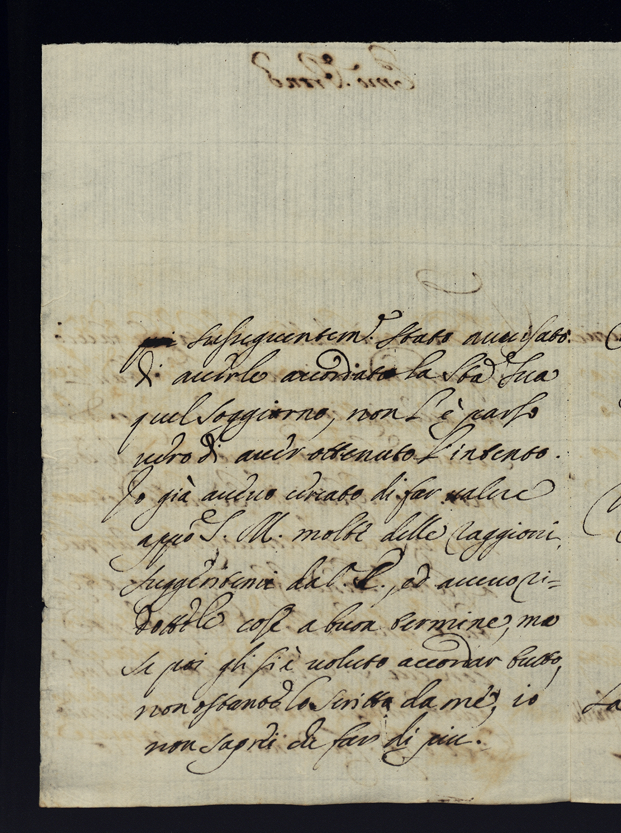 susseguentem.te stato avvisato
di averle accordato la S.tà Sua
quel soggiorno, non l'è parso
vero di aver ottenuto l'intento.
Io già avevo cercato di far valere
appo S. M. molte delle raggioni
suggeritemi dal P., ed avevo ri=
dotto le cose a buon termine, ma
se poi gli si è voluto accordar tutto,
non ostante lo scritto da me, io
non saprei che farci di più.